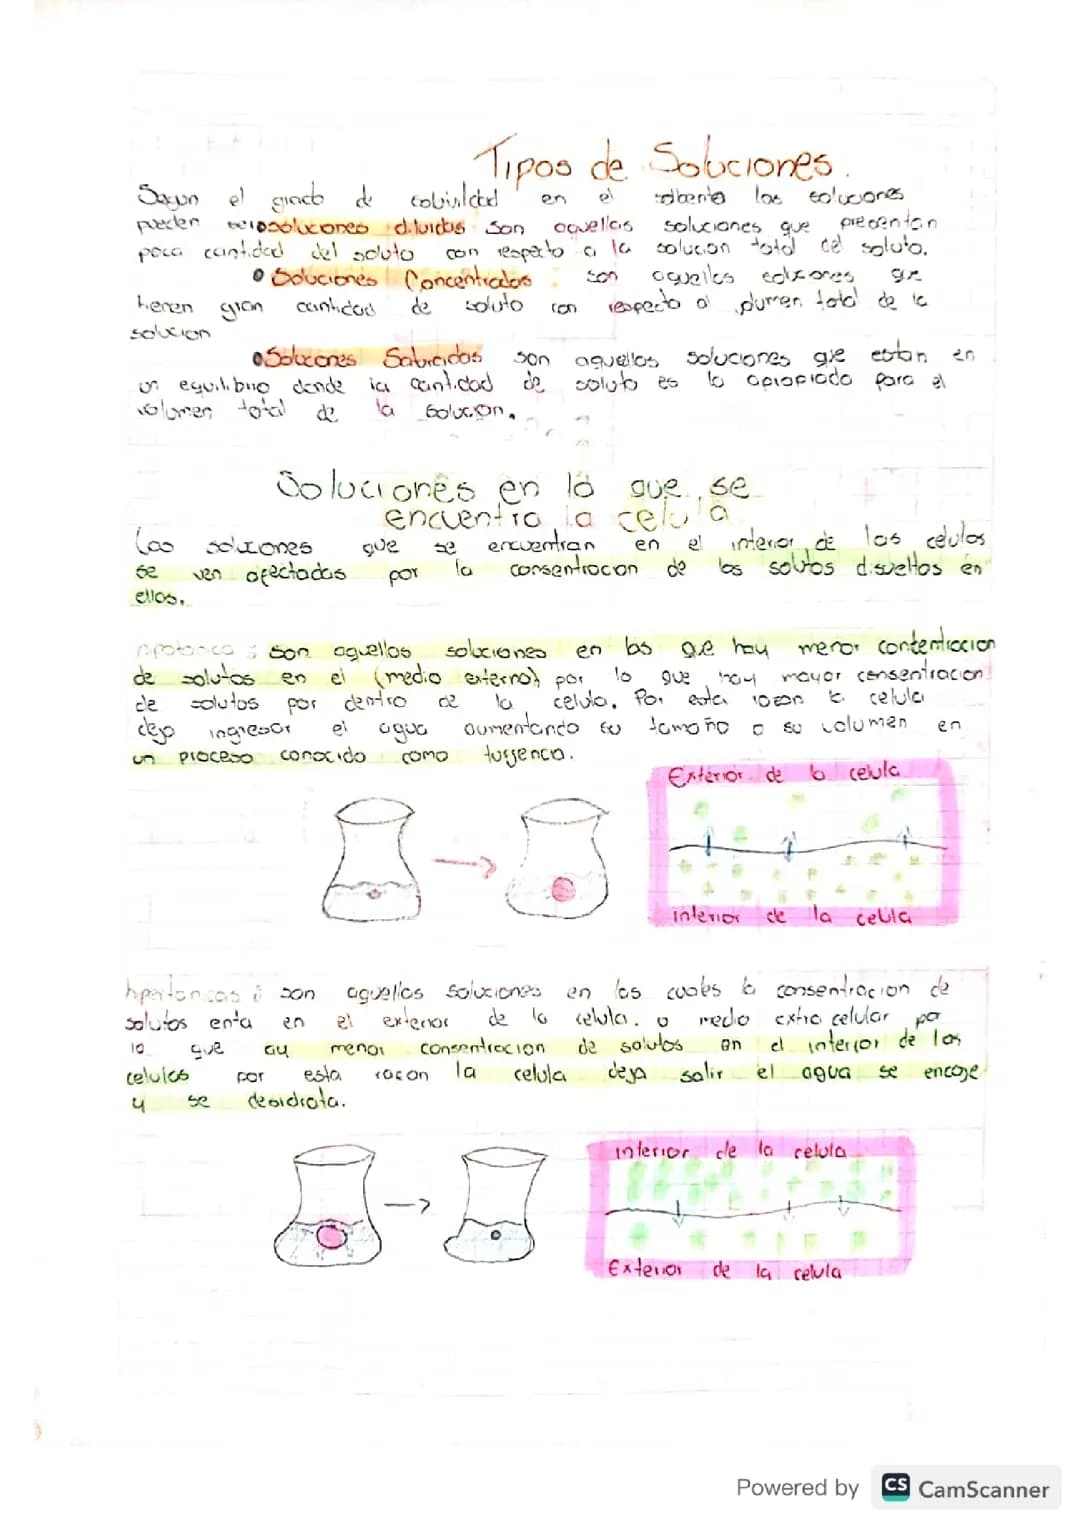 Tipos de Soluciones.
Segun el grado de solubilidad en el solvente las soluciones
pueden ser soluciones diluidas son aquellas soluciones que presentan
poca cantidad del soluto con respecto a la solucion total del soluto.
• Soluciones Concentradas : son aquellas soluciones que
tienen gran cantidad de soluto con respecto al volumen total de la
solucion
• Soluciones Saturadas son aquellas soluciones que estan en
un equilibrio donde la cantidad de soluto es lo apropiado para el
volumen total de la solucion.
Soluciones en la que se
encuentra la celula
Las soluciones que se encuentran en el interior de las celulas
se ven afectadas por la consentracon de los solutos disueltos en
ellas.
hipotonica : son aquellas soluciones en las que hay menor contentracion
de solutos en el (medio externo) por lo que hay mayor consentracion
de solutos por dentro de la celula. Por esta razon la celula
deja ingresar el agua aumentando su tamaño o su volumen en
un proceso conocido como turgenca.
Exterior de la celula
interior de la celula
hipertonicas : son aquellas soluciones en las cuales la consentracion de
solutos enta en el exterior de la celula. o medio extra celular por
lo que ay menor consentracion de solutos en el interior de las
celulas por esta racon la celula deja salir el agua se encoge
y se desidrata.
interior de la celula
Exterior de la celula
Powered by CS CamScanner